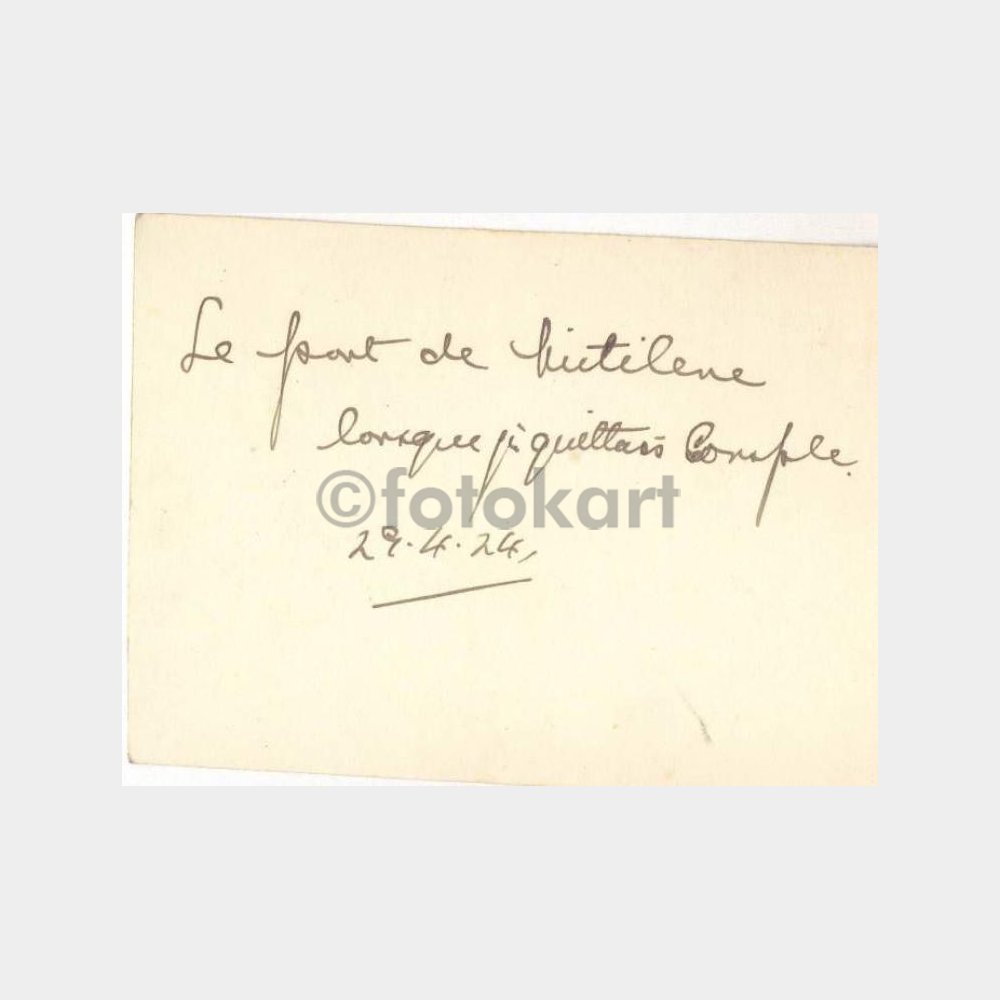 Le port de Mitilene
lorsque je quittais Consple.
©fotokart
29.4.24,